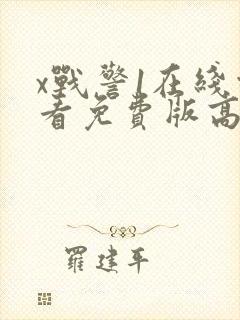 x戰警1在綫
看免費版高
羅建平